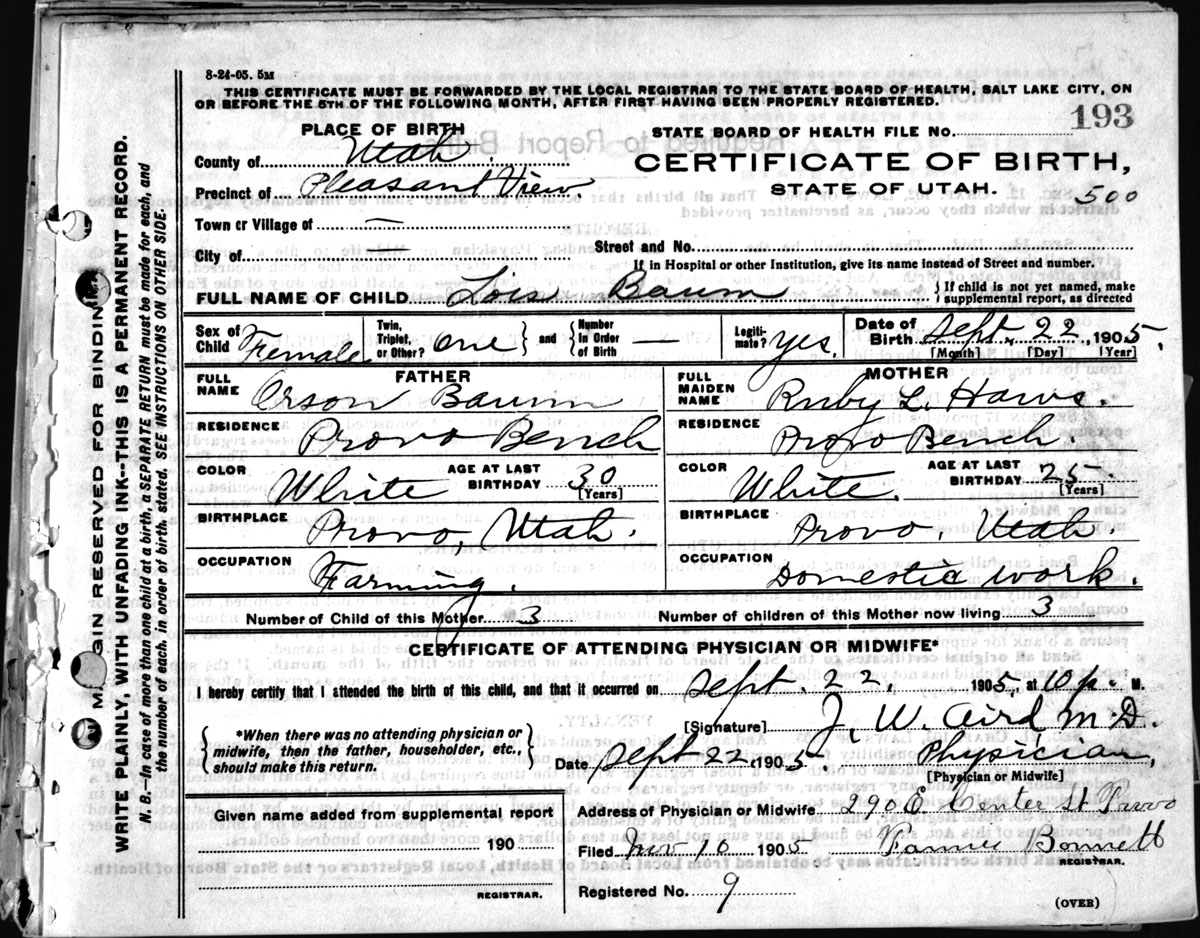 8-24-05. 5M
THIS CERTIFICATE MUST BE FORWARDED BY THE LOCAL REGISTRAR TO THE STATE BOARD OF HEALTH, SALT LAKE CITY, ON
OR BEFORE THE 5TH OF THE FOLLOWING MONTH, AFTER FIRST HAVING BEEN PROPERLY REGISTERED.
PLACE OF BIRTH
County of Utah.
Precinct of Pleasant View
Town or Village of —
City of —
STATE BOARD OF HEALTH FILE No. 193
CERTIFICATE OF BIRTH,
STATE OF UTAH.
500
Street and No.
If in Hospital or other Institution, give its name instead of Street and number.
FULL NAME OF CHILD Lois Baum
If child is not yet named, make
supplemental report, as directed
Sex of Child Female
Twin, Triplet, or Other? One and Number In Order of Birth —
Legitimate? yes.
Date of Birth Sept. 22, 1905.
[Month] [Day] [Year]
FATHER
FULL NAME Orson Baum
RESIDENCE Provo Bench
COLOR White AGE AT LAST BIRTHDAY 30
[Years]
BIRTHPLACE Provo, Utah.
OCCUPATION Farming.
MOTHER
FULL MAIDEN NAME Ruby L. Haws.
RESIDENCE Provo Bench.
COLOR White. AGE AT LAST BIRTHDAY 25
[Years]
BIRTHPLACE Provo, Utah.
OCCUPATION Domestic work.
Number of Child of this Mother 3 Number of children of this Mother now living 3
CERTIFICATE OF ATTENDING PHYSICIAN OR MIDWIFE*
I hereby certify that I attended the birth of this child, and that it occurred on Sept. 22, 1905, at 10 p. M.
*When there was no attending physician or
midwife, then the father, householder, etc.,
should make this return.
[Signature] J. W. Aird M.D.
Date Sept 22 1905 Physician,
[Physician or Midwife]
Given name added from supplemental report
190
REGISTRAR.
Address of Physician or Midwife 290 E Center St Provo
Filed Nov 10 1905 Bonnett
REGISTRAR.
Registered No. 9
(OVER)
MARGIN RESERVED FOR BINDING
WRITE PLAINLY, WITH UNFADING INK--THIS IS A PERMANENT RECORD.
N. B.—In case of more than one child at a birth, a SEPARATE RETURN must be made for each, and
the number of each, in order of birth, stated. SEE INSTRUCTIONS ON OTHER SIDE.